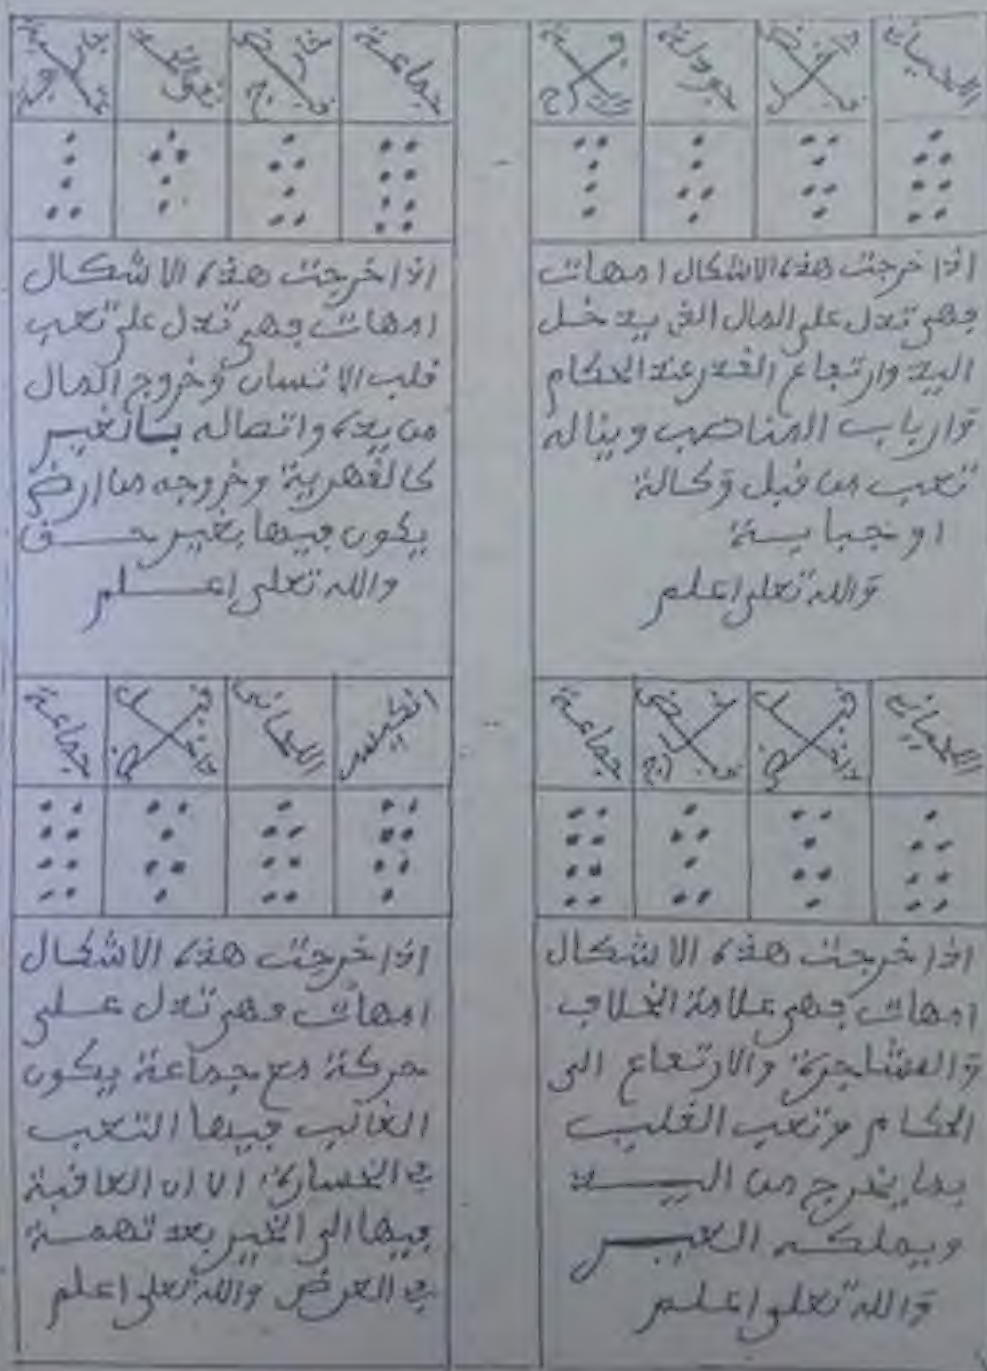 اللحيانة
قابض داخل
جودلة
فرح
جماعة
قابض خارج
نقي الخد
خارجة
اذا خرجت هذه الاشكال امهات
فهي تدل على المال الذي يدخل
اليه وارتفاع القدر عند الحكام
وارباب المناصب ويناله
تعب من قبل وكالة
او جباية
والله تعلى اعلم
اذا خرجت هذه الاشكال
امهات فهي تدل على تعب
قلب الانسان وخروج المال
من يده واتصاله بالغير
كالقهرية وخروجه من ارض
يكون فيها بغير حق
والله تعلى اعلم
اللحيانة
قبض داخل
قبض خارج
جماعة
انكيس
اللحيانة
قبض داخل
جماعة
اذا خرجت هذه الاشكال
امهات فهي علامة الخلاف
والمشاجرة والارتفاع الى
الحكام وتعب القلب
بما يخرج من اليد
ويملكه الغير
والله تعلى اعلم
اذا خرجت هذه الاشكال
امهات فهي تدل على
حركة مع جماعة يكون
الغالب فيها التعب
في الخسارة الا ان العاقبة
فيها الى الخير بعد تهمة
في العرض والله تعلى اعلم